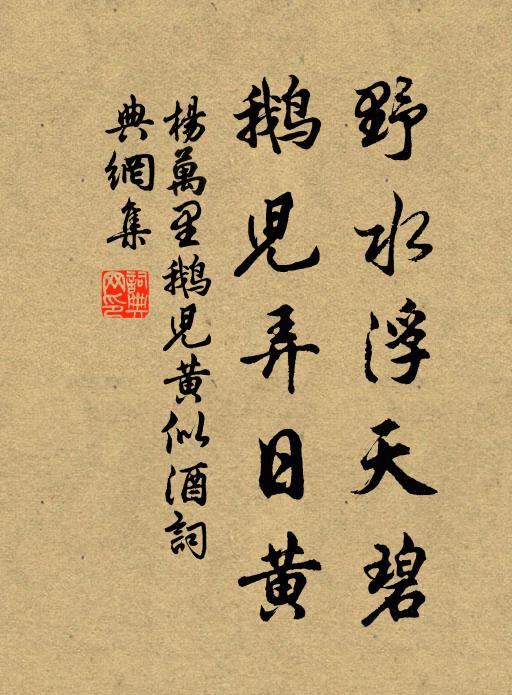 野水浮天碧
鵝兒弄日黄
楊萬里鵝兒黄似酒詞
典網集
詞典網印